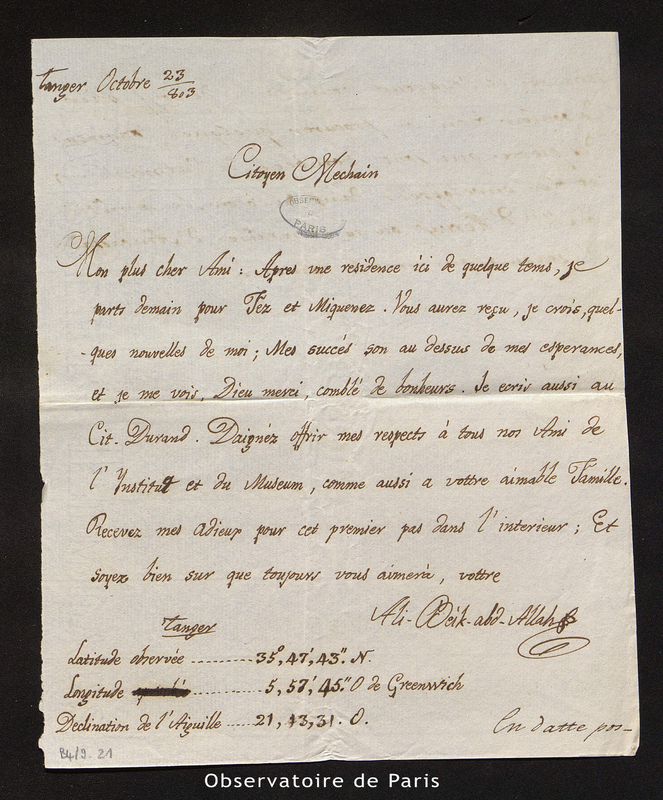 Tanger Octobre 23/803
Citoyen Mechain
OBSERV
PARIS
Mon plus cher Ami : Apres vne residence ici de quelque tems, je
parts demain pour Fez et Miquenez. Vous aurez reçu, je crois, quel-
-ques nouvelles de moi ; Mes succés son au dessus de mes esperances,
et je me vois, Dieu merci, comblé de bonheurs. Je ecris aussi au
Cit. Durand. Daignéz offrir mes respects à tous nos Ami de
l'Institut et du Museum, comme aussi a vottre aimable Famille.
Recevez mes adieux pour cet premier pas dans l'interieur ; Et
soyez bien sur que toujours vous aimerà, vottre
Ali-Beik-abd-Allah
Tanger
Latitude observée ........ 35°, 47', 43". N.
Longitude ........ 5, 57', 45" O de Greenwich
Declination de l'Aiguille .... 21, 13, 31. O.
En datte pos-
B4/9. 21
Observatoire de Paris